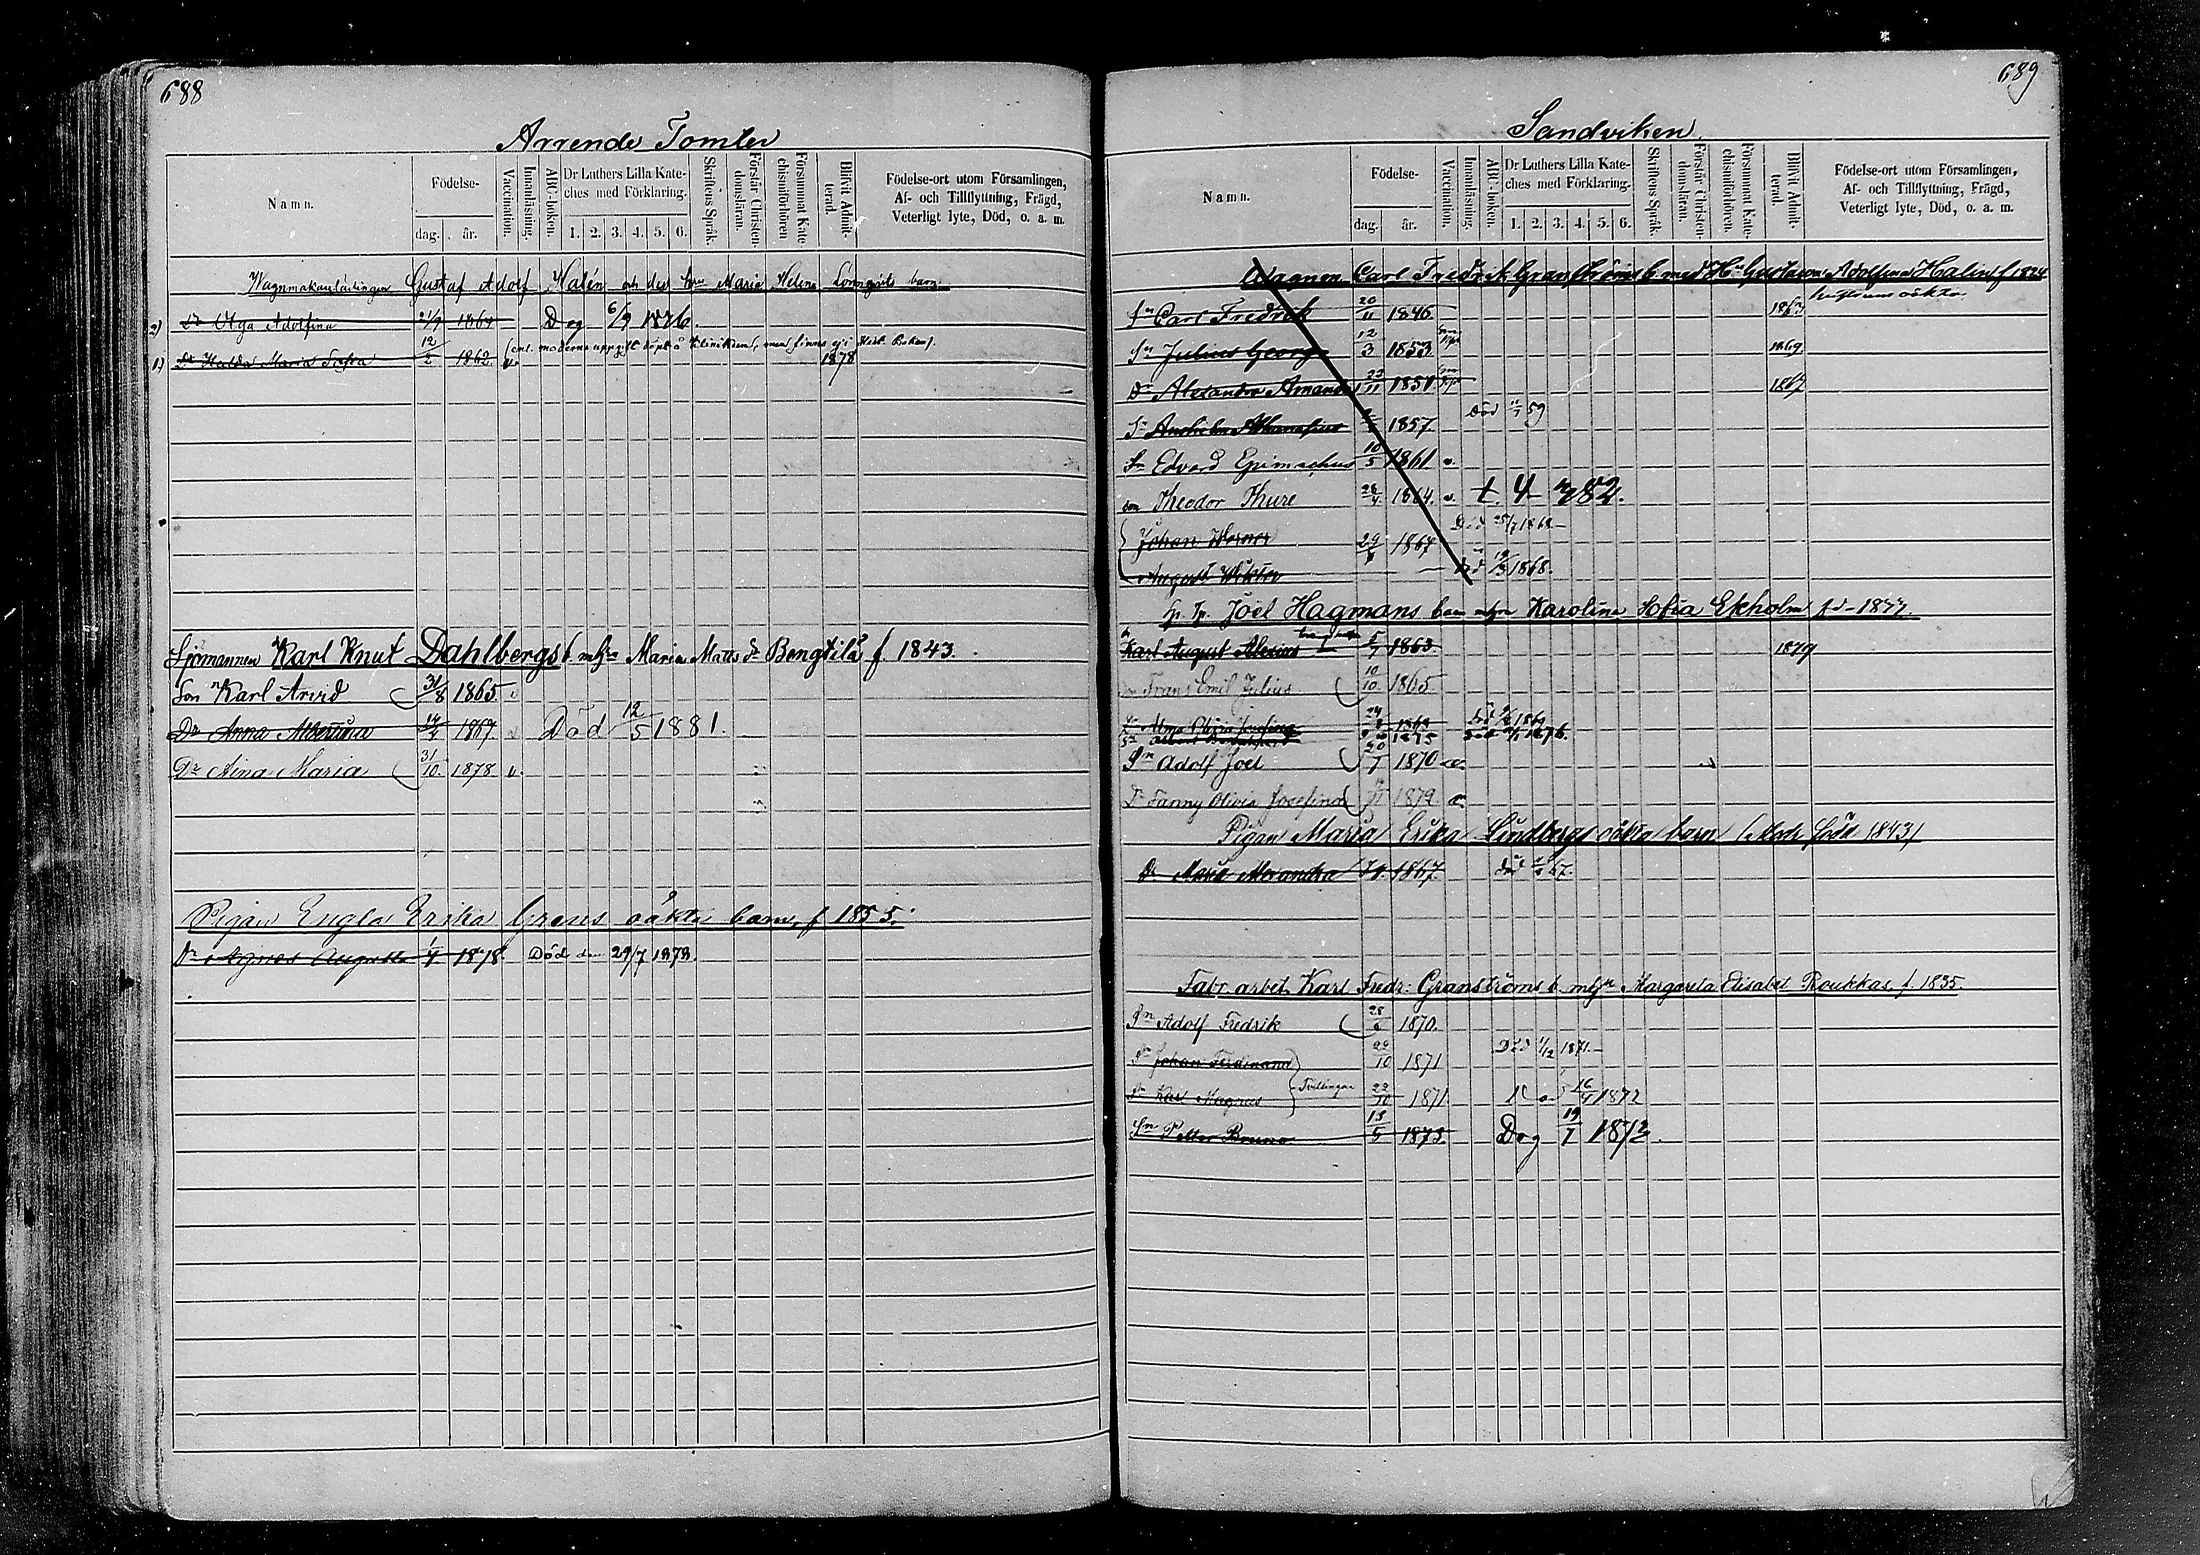 688
Arrende Tomter
Namn.
Födelse-
dag. år.
Vaccination.
Innanläsning.
ABC-boken.
Dr Luthers Lilla Kate-
ches med Förklaring.
1. 2. 3. 4. 5. 6.
Skriftens Språk.
Förstår Christen-
domsläran.
Försummat Kate-
chismiförhören
Blifvit Admit-
terad.
Födelse-ort utom Församlingen,
Af- och Tillflyttning, Frägd,
Veterligt lyte, Död, o. a. m.
Wagnmakarelärlingen Gustaf Adolf Halén och des hru Maria Helena Lönnqvists barn.
2) Dr Olga Adolfina 21/9 1864 Dog 6/9 1876.
(enl. moderns uppgift döpt å Kliniken, men finns ej i Hist. Boken).
1) Dr Hulda Maria Sofia 12/2 1862. v. 1878
Sjömannen Karl Knut Dahlbergs b. m hn Maria Matts dr Bengtilä f. 1843.
Son Karl Arvid 31/8 1865. v
Dr Anna Albertina 14/4 1867 v Död 12/5 1881.
Dr Aina Maria 31/10. 1878 v.
Pigan Engla Erika Grens oäkta barn, f 1855.
Dr Agnes Augusta 1/4 1878. Död den 29/7 1878
689
Sandviken
Namn.
Födelse-
dag. år.
Vaccination.
Innanläsning.
ABC-boken.
Dr Luthers Lilla Kate-
ches med Förklaring.
1. 2. 3. 4. 5. 6.
Skriftens Språk.
Förstår Christen-
domsläran.
Försummat Kate-
chismiförhören.
Blifvit Admit-
terad.
Födelse-ort utom Församlingen,
Af- och Tillflyttning, Frägd,
Veterligt lyte, Död, o. a. m.
Carl Fredrik Granströms b med H. Gustava Adolfina Halin f 1824
hustruns oäkta.
Sn Carl Fredrik 20/11 1846 1863
Sn Julius Georg 12/3 1853 1869
Dr Alexandra Amanda 23/11 1850 1867
Sn 1857. Död 11/1 59
Sn Edvard Epimachus 10/5 1861 v.
son Theodor Thure 28/4 1864. v. † 4 82.
Johan Werner 29 1867 Död 25/7 1868
August Viktor Död 19/3 1868.
Joël Hagmans barn mhn Karolina Sofia Ekholm f. d. 1877.
Karl August Alexius 5/7 1863 1879
Frans Emil Julius 10/10 1865
Dr Alma Olivia Josefina 24 1868 Död 1869
Sn 1875 Död 1876.
Sn Adolf Joel 20/7 1870
Dr Fanny Olivia Josefina 1872
Pigan Maria Erika Lindbergs oäkta barn (Modr född 1843)
Dr Maria Alexandra 1867. död 67.
Fabr. arbet. Karl Fredr. Granströms b. mhn Margareta Elisabet Roukkas f. 1835.
Sn Adolf Fredrik 28/6 1870.
Sn Johan Ferdinand 22/10 1871 Död 1/12 1871
Tvillingar
Sn Karl Magnus 22/10 1871 16/4 1872
Sn Petter Bruno 13/5 1873. Dog 19/7 1873.